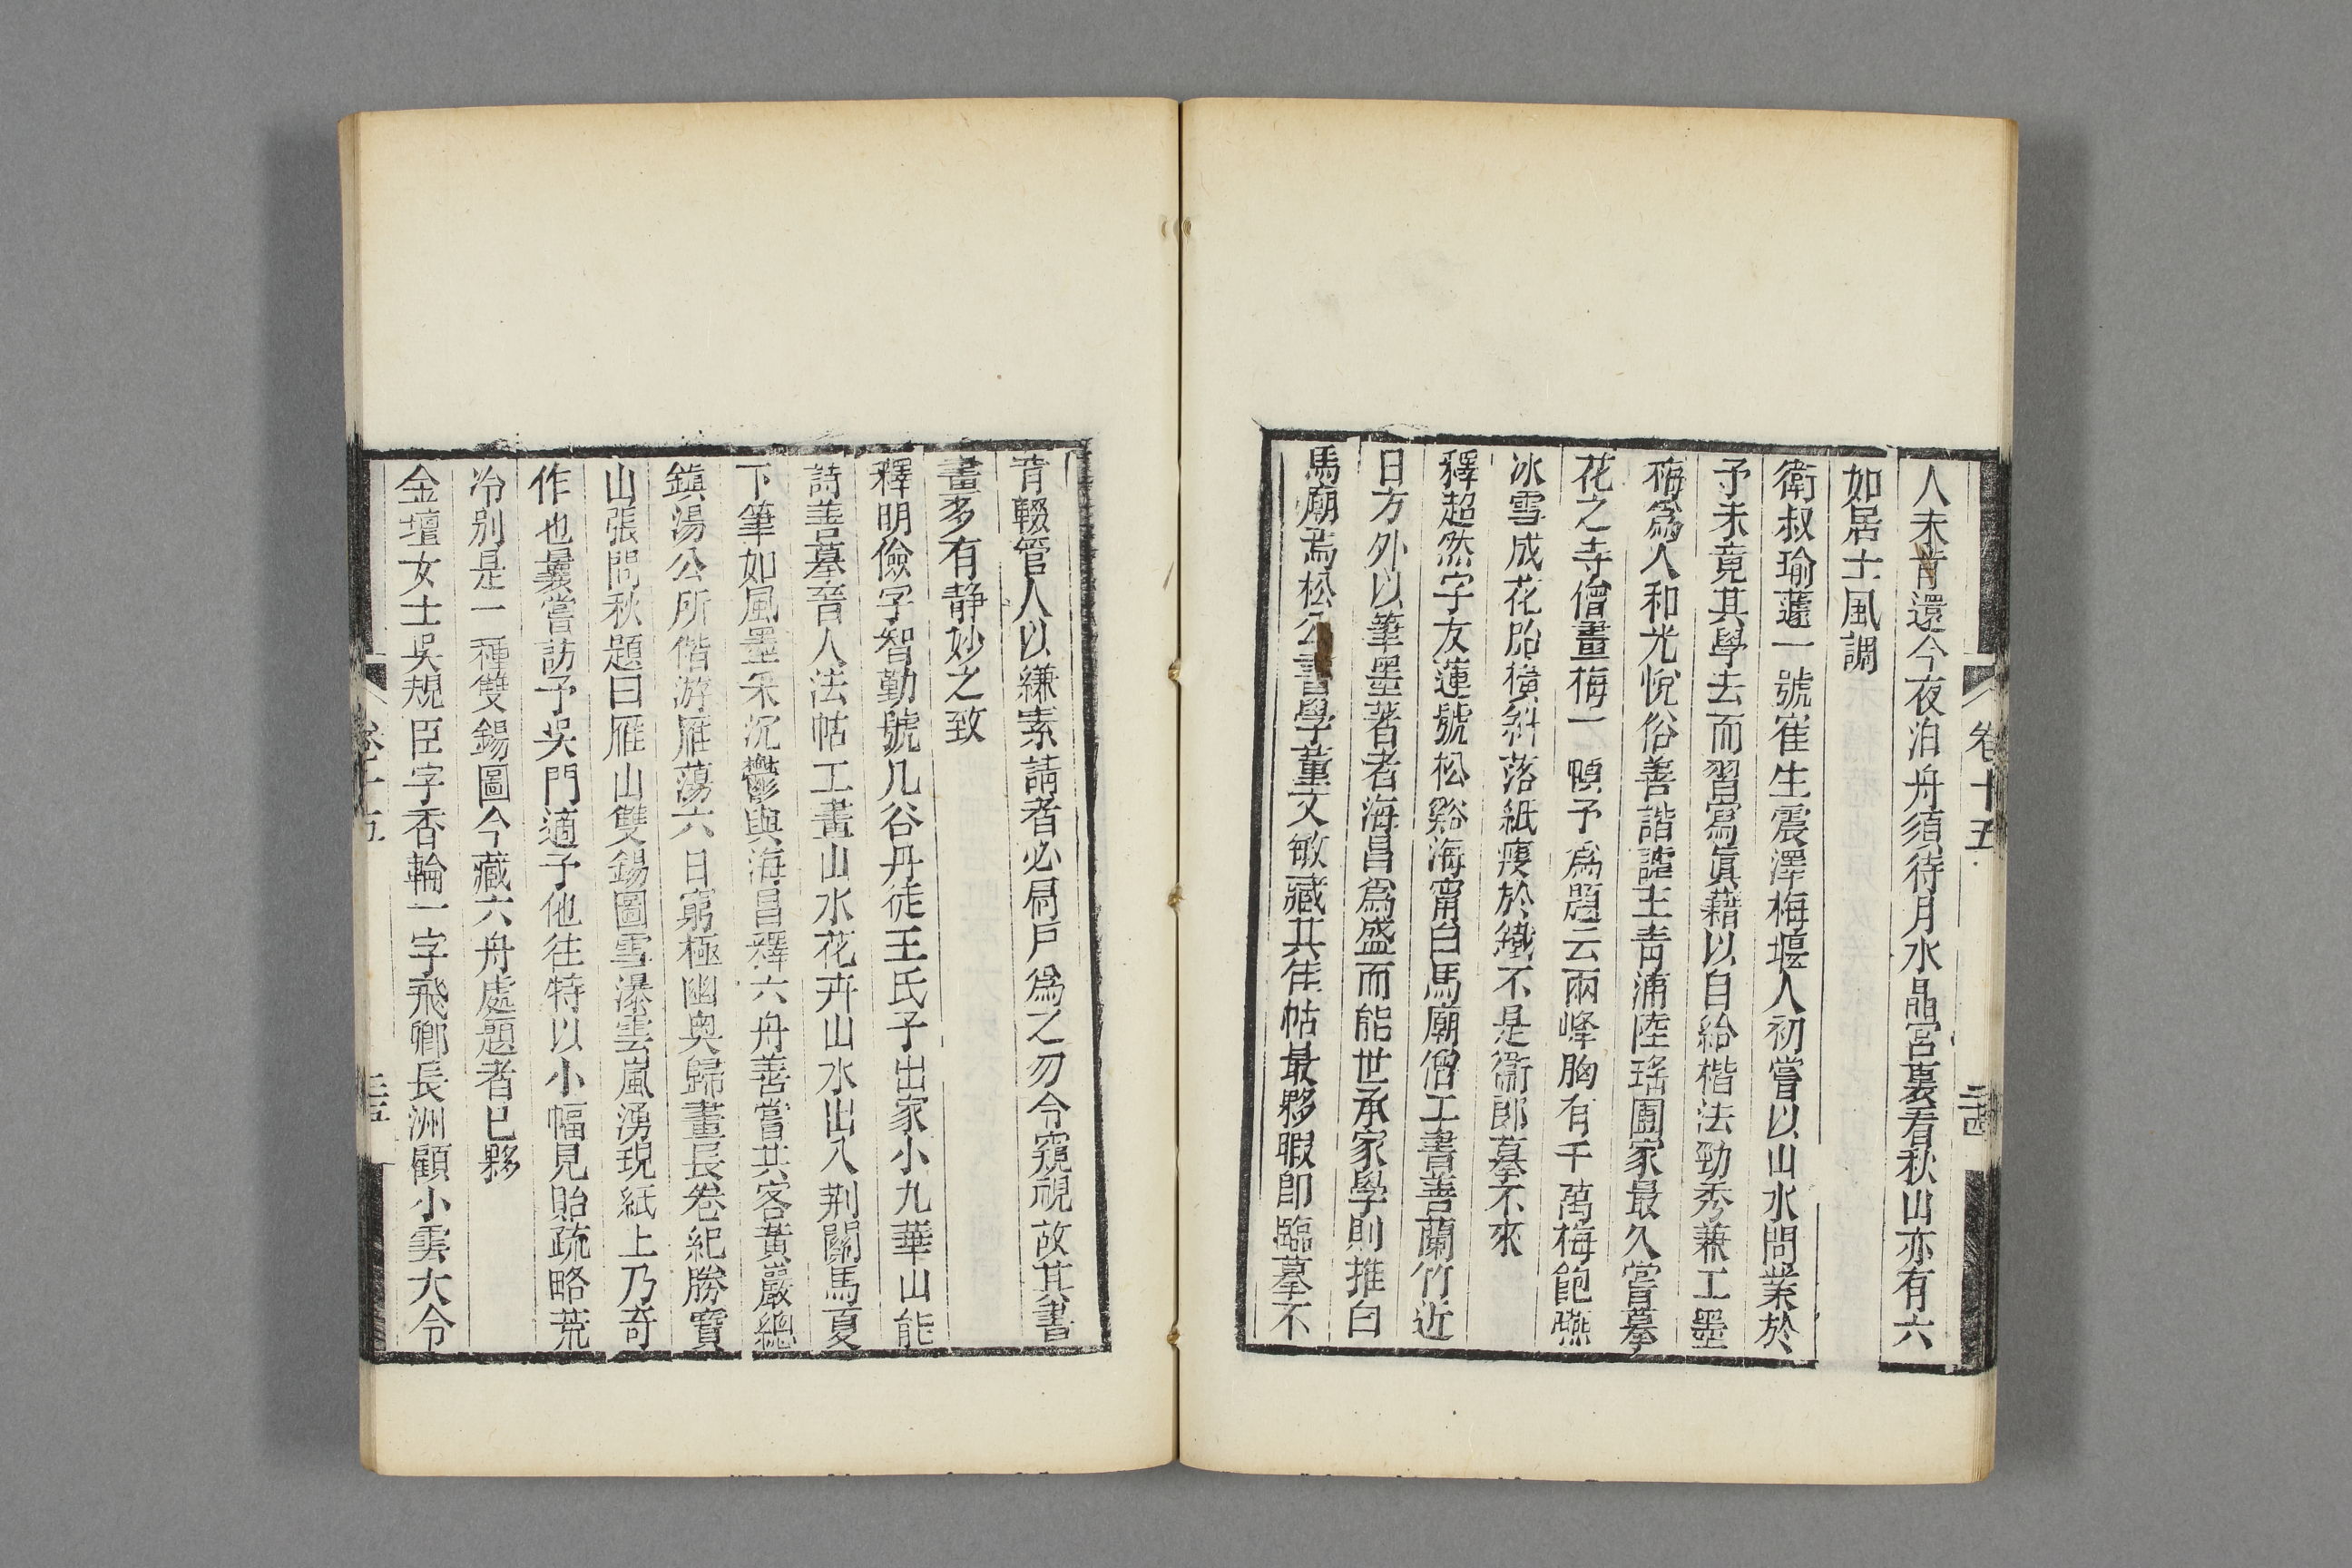 卷十五
二十四
人未肯還今夜泊舟須待月水晶宮裏看秋山亦有六
如居士風調
衛叔瑜蘧一號寉生震澤梅堰人初嘗以山水問業於
予未竟其學去而習寫眞藉以自給楷法勁秀兼工墨
梅爲人和光悅俗善諧謔主青浦陸瑤圃家最久嘗摹
花之寺僧畫梅一幀予爲題云兩峰胸有千萬梅飽嚥
冰雪成花胎橫斜落紙瘦於鐵不是衛郎摹不來
釋超然字友蓮號松谿海甯白馬廟僧工書善蘭竹近
日方外以筆墨著者海昌爲盛而能世承家學則推白
馬廟焉松公書學董文敏藏其佳帖最夥暇卽臨摹不
肯輟管人以縑素請者必扃戶爲之勿令窺視故其書
畫多有靜妙之致
釋明儉字智勤號几谷丹徒王氏子出家小九華山能
詩善摹晉人法帖工畫山水花卉山水出入荆關馬夏
下筆如風墨采沉鬱與海昌釋六舟善嘗共客黃巖總
鎮湯公所偕游雁蕩六日窮極幽奥歸畫長卷紀勝寶
山張問秋題曰雁山雙錫圖雪瀑雲嵐湧現紙上乃奇
作也曩嘗訪予吳門適予他往特以小幅見貽疏略荒
冷别是一種雙錫圖今藏六舟處題者已夥
金壇女士吳規臣字香輪一字飛卿長洲顧小雲大令
卷十五